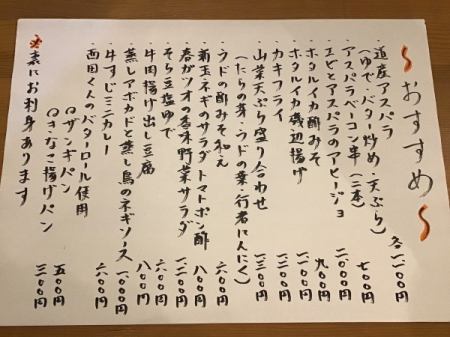 〜おすすめ〜
・道産アスパラ
(ゆで・バター炒め・天ぷら)
・アスパラベーコン串(二本) 七〇〇円
・エビとアスパラのアヒージョ
・ホタルイカ酢みそ 九〇〇円
・ホタルイカ磯辺揚げ
・カキフライ
・山菜天ぷら盛り合わせ 一三〇〇円
(たらの芽・ウドの葉・行者にんにく)
・ウドの酢みそ和え 六〇〇円
・新玉ネギのサラダトマトポン酢 八〇〇円
・春ガツオの香味野菜サラダ
・そら豆塩ゆで 六〇〇円
・牛肉揚げ出し豆腐 八〇〇円
・蒸しアボカドと蒸し鳥のネギソース
・牛すじミニカレー 六〇〇円
・西田くんのバターロール使用
ザンギパン 五〇〇円
きなこ揚げパン 三〇〇円
裏にお刺身あります